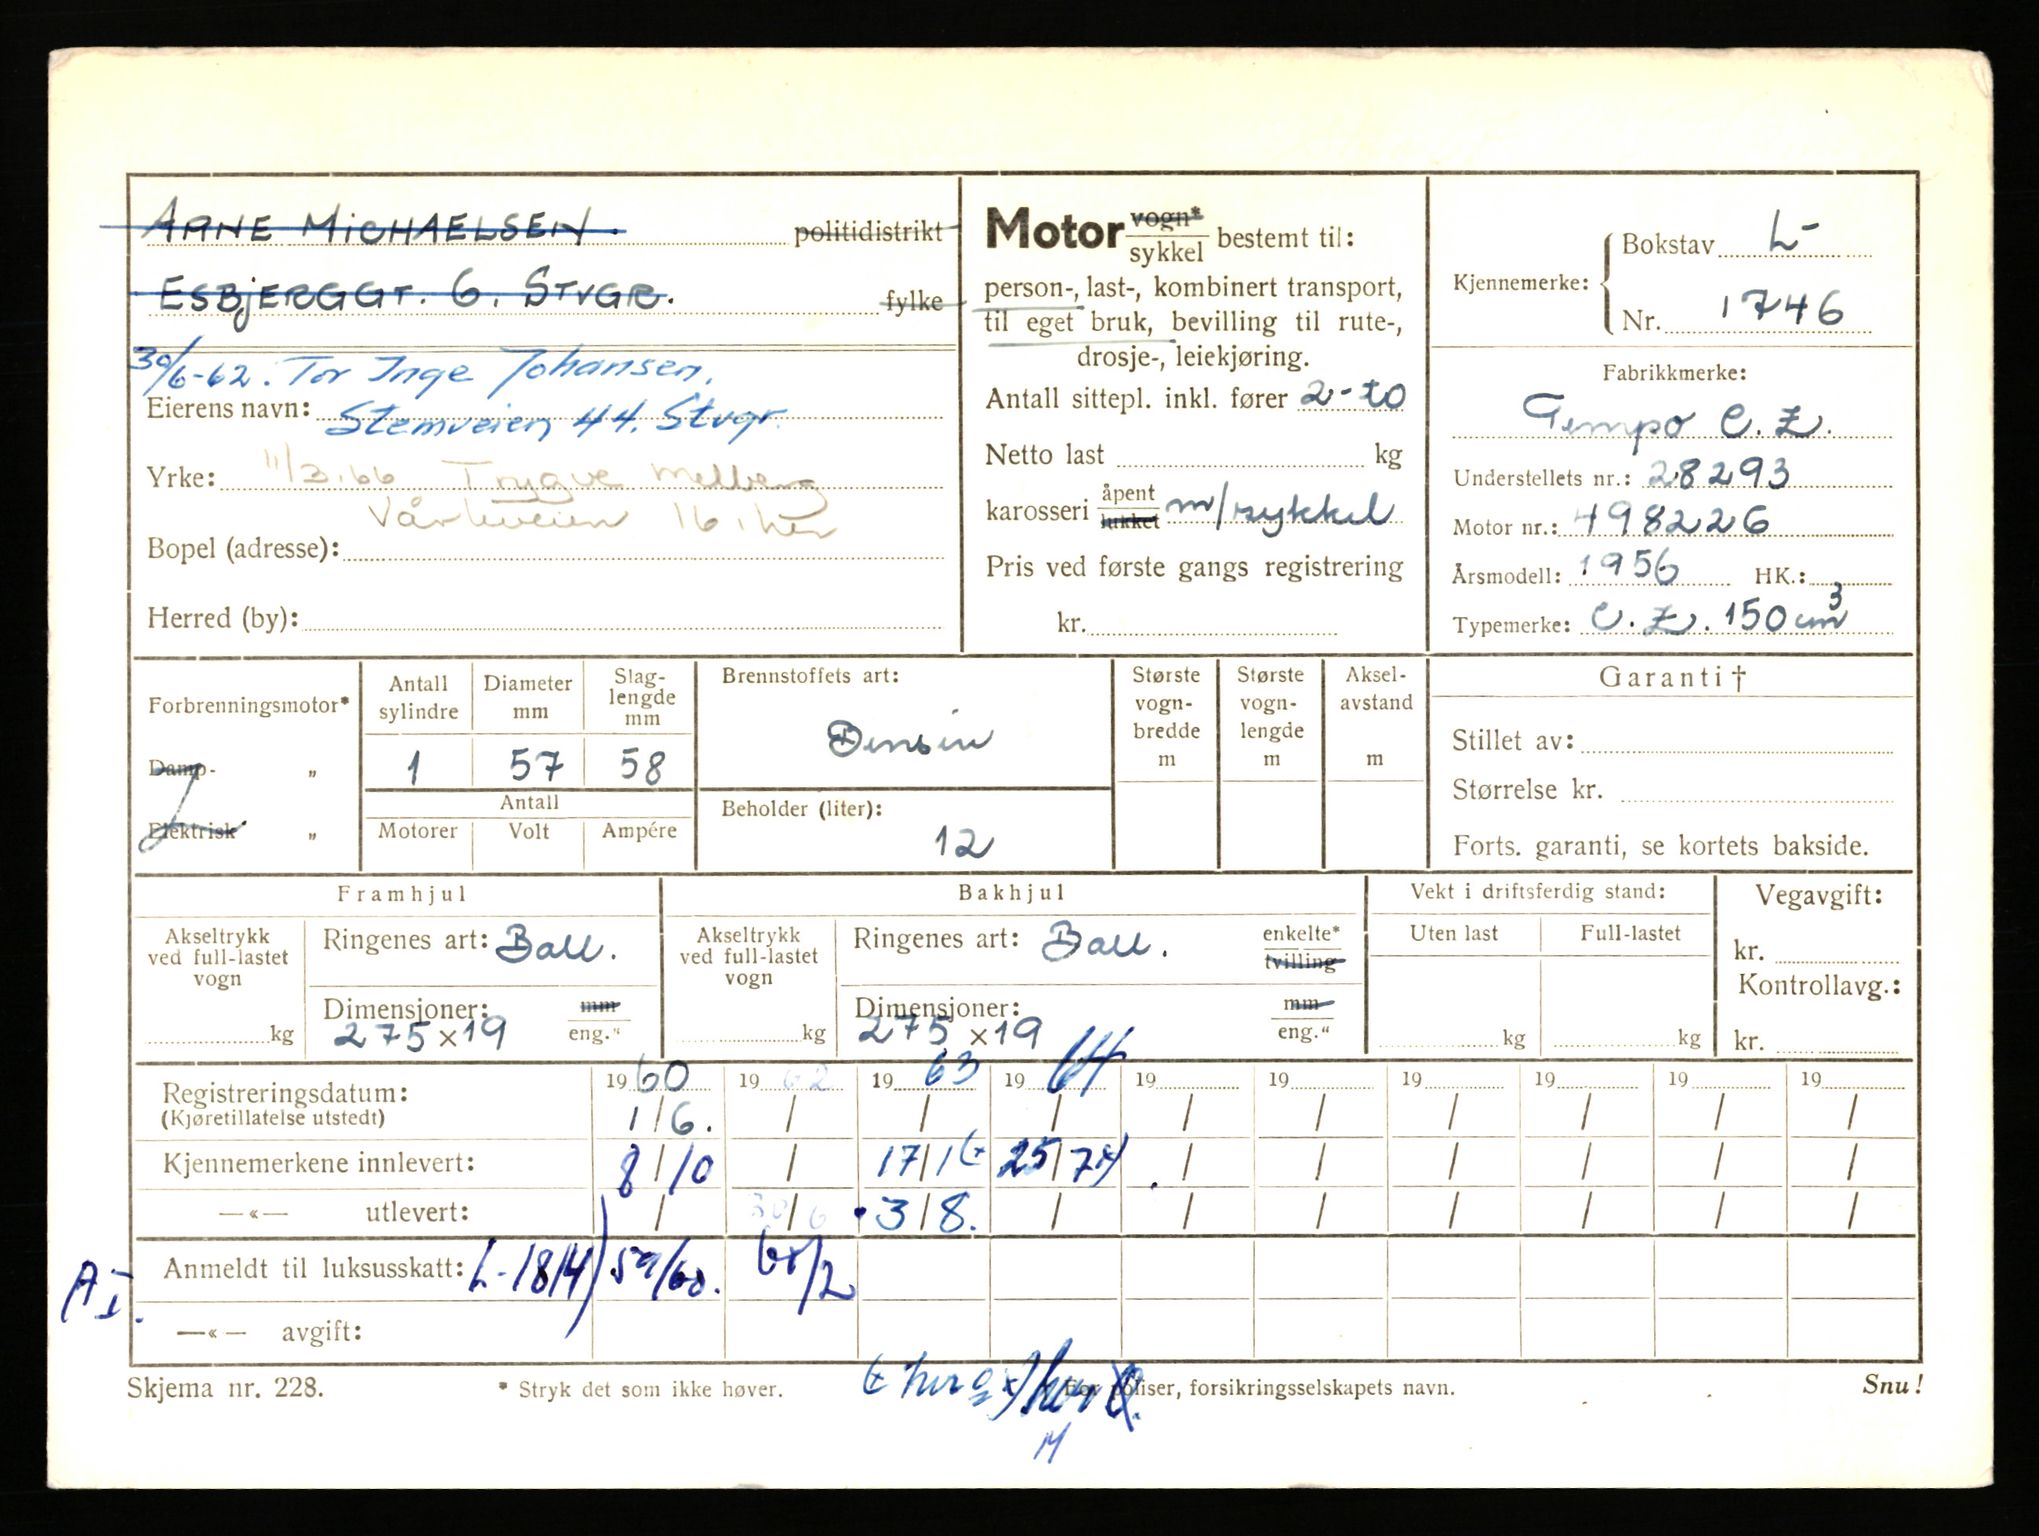 ARNE MICHAELSEN. politidistrikt
ESBJERGGT. 6. STVGR. fylke
30/6-62. Tor Inge Johansen.
Eierens navn: Stemveien 44. Stvgr.
Yrke: 11/3.66 Trygve Melberg
Vårluveien 16, her
Bopel (adresse):
Herred (by):
Motor vogn* / sykkel bestemt til:
person-, last-, kombinert transport,
til eget bruk, bevilling til rute-,
drosje-, leiekjøring.
Antall sittepl. inkl. fører 2-to
Netto last kg
karosseri åpent / lukket m/sykkel
Pris ved første gangs registrering
kr.
Kjennemerke: Bokstav L-
Nr. 1746
Fabrikkmerke:
Tempo C.Z.
Understellets nr.: 28293
Motor nr.: 498226
Årsmodell: 1956 HK.:
Typemerke: C.Z. 150 cm3
Forbrenningsmotor*
Damp- „
Elektrisk „
Antall sylindre Diameter mm Slag-lengde mm
1 57 58
Antall
Motorer Volt Ampére
Brennstoffets art:
Bensin
Beholder (liter):
12
Største vogn-bredde m
Største vogn-lengde m
Aksel-avstand m
Garanti †
Stillet av:
Størrelse kr.
Forts. garanti, se kortets bakside.
Framhjul
Akseltrykk ved full-lastet vogn
kg
Ringenes art: Ball.
Dimensjoner: mm / eng."
275 x 19
Bakhjul
Akseltrykk ved full-lastet vogn
kg
Ringenes art: Ball. enkelte* / tvilling
Dimensjoner: mm / eng."
275 x 19
Vekt i driftsferdig stand:
Uten last Full-lastet
kg kg
Vegavgift:
kr.
Kontrollavg.:
kr.
Registreringsdatum: 1960 1962 1963 1964 19 19 19 19 19 19
(Kjøretillatelse utstedt) 1/6. / / / / / / / / /
Kjennemerkene innlevert: 8/10 / 17/1 25/7 x) / / / / / /
—«— utlevert: / 30/6 3/8. / / / / / / /
Anmeldt til luksusskatt: L-1814) 59/60. /2
A I.
—«— avgift:
Skjema nr. 228.
* Stryk det som ikke høver.
For poliser, forsikringsselskapets navn.
Snu!
M